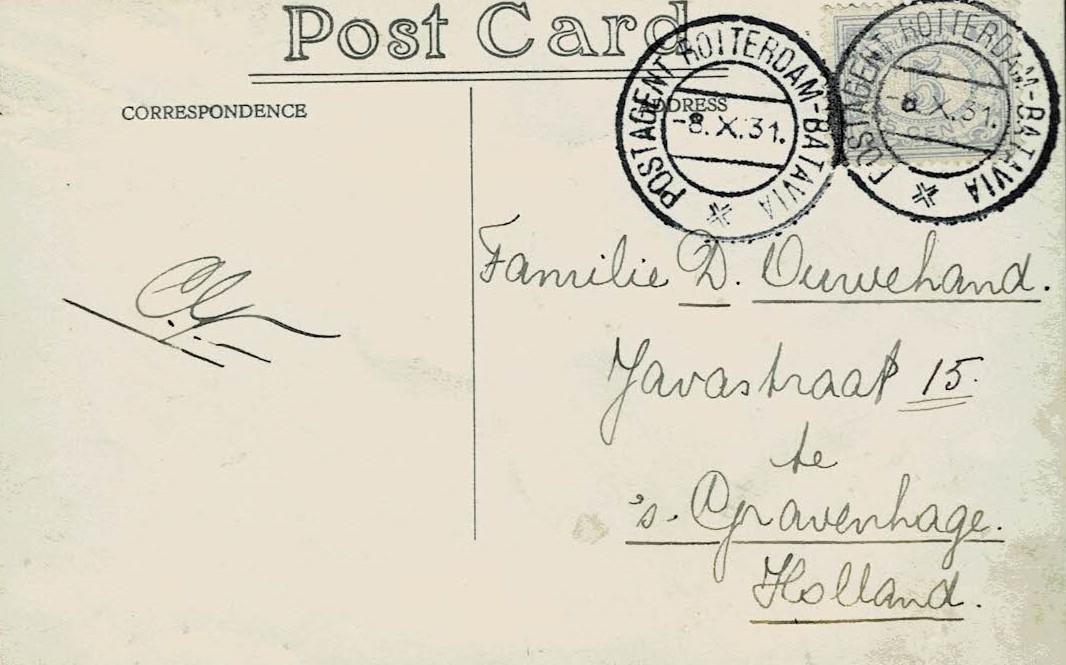 Post Card
CORRESPONDENCE
ADDRESS
POSTAGENT ROTTERDAM-BATAVIA
-8.X.31.
POSTAGENT ROTTERDAM-BATAVIA
-8.X.31.
CENT
Familie D. Ouwehand.
Javastraat 15.
te
's-Gravenhage.
Holland.